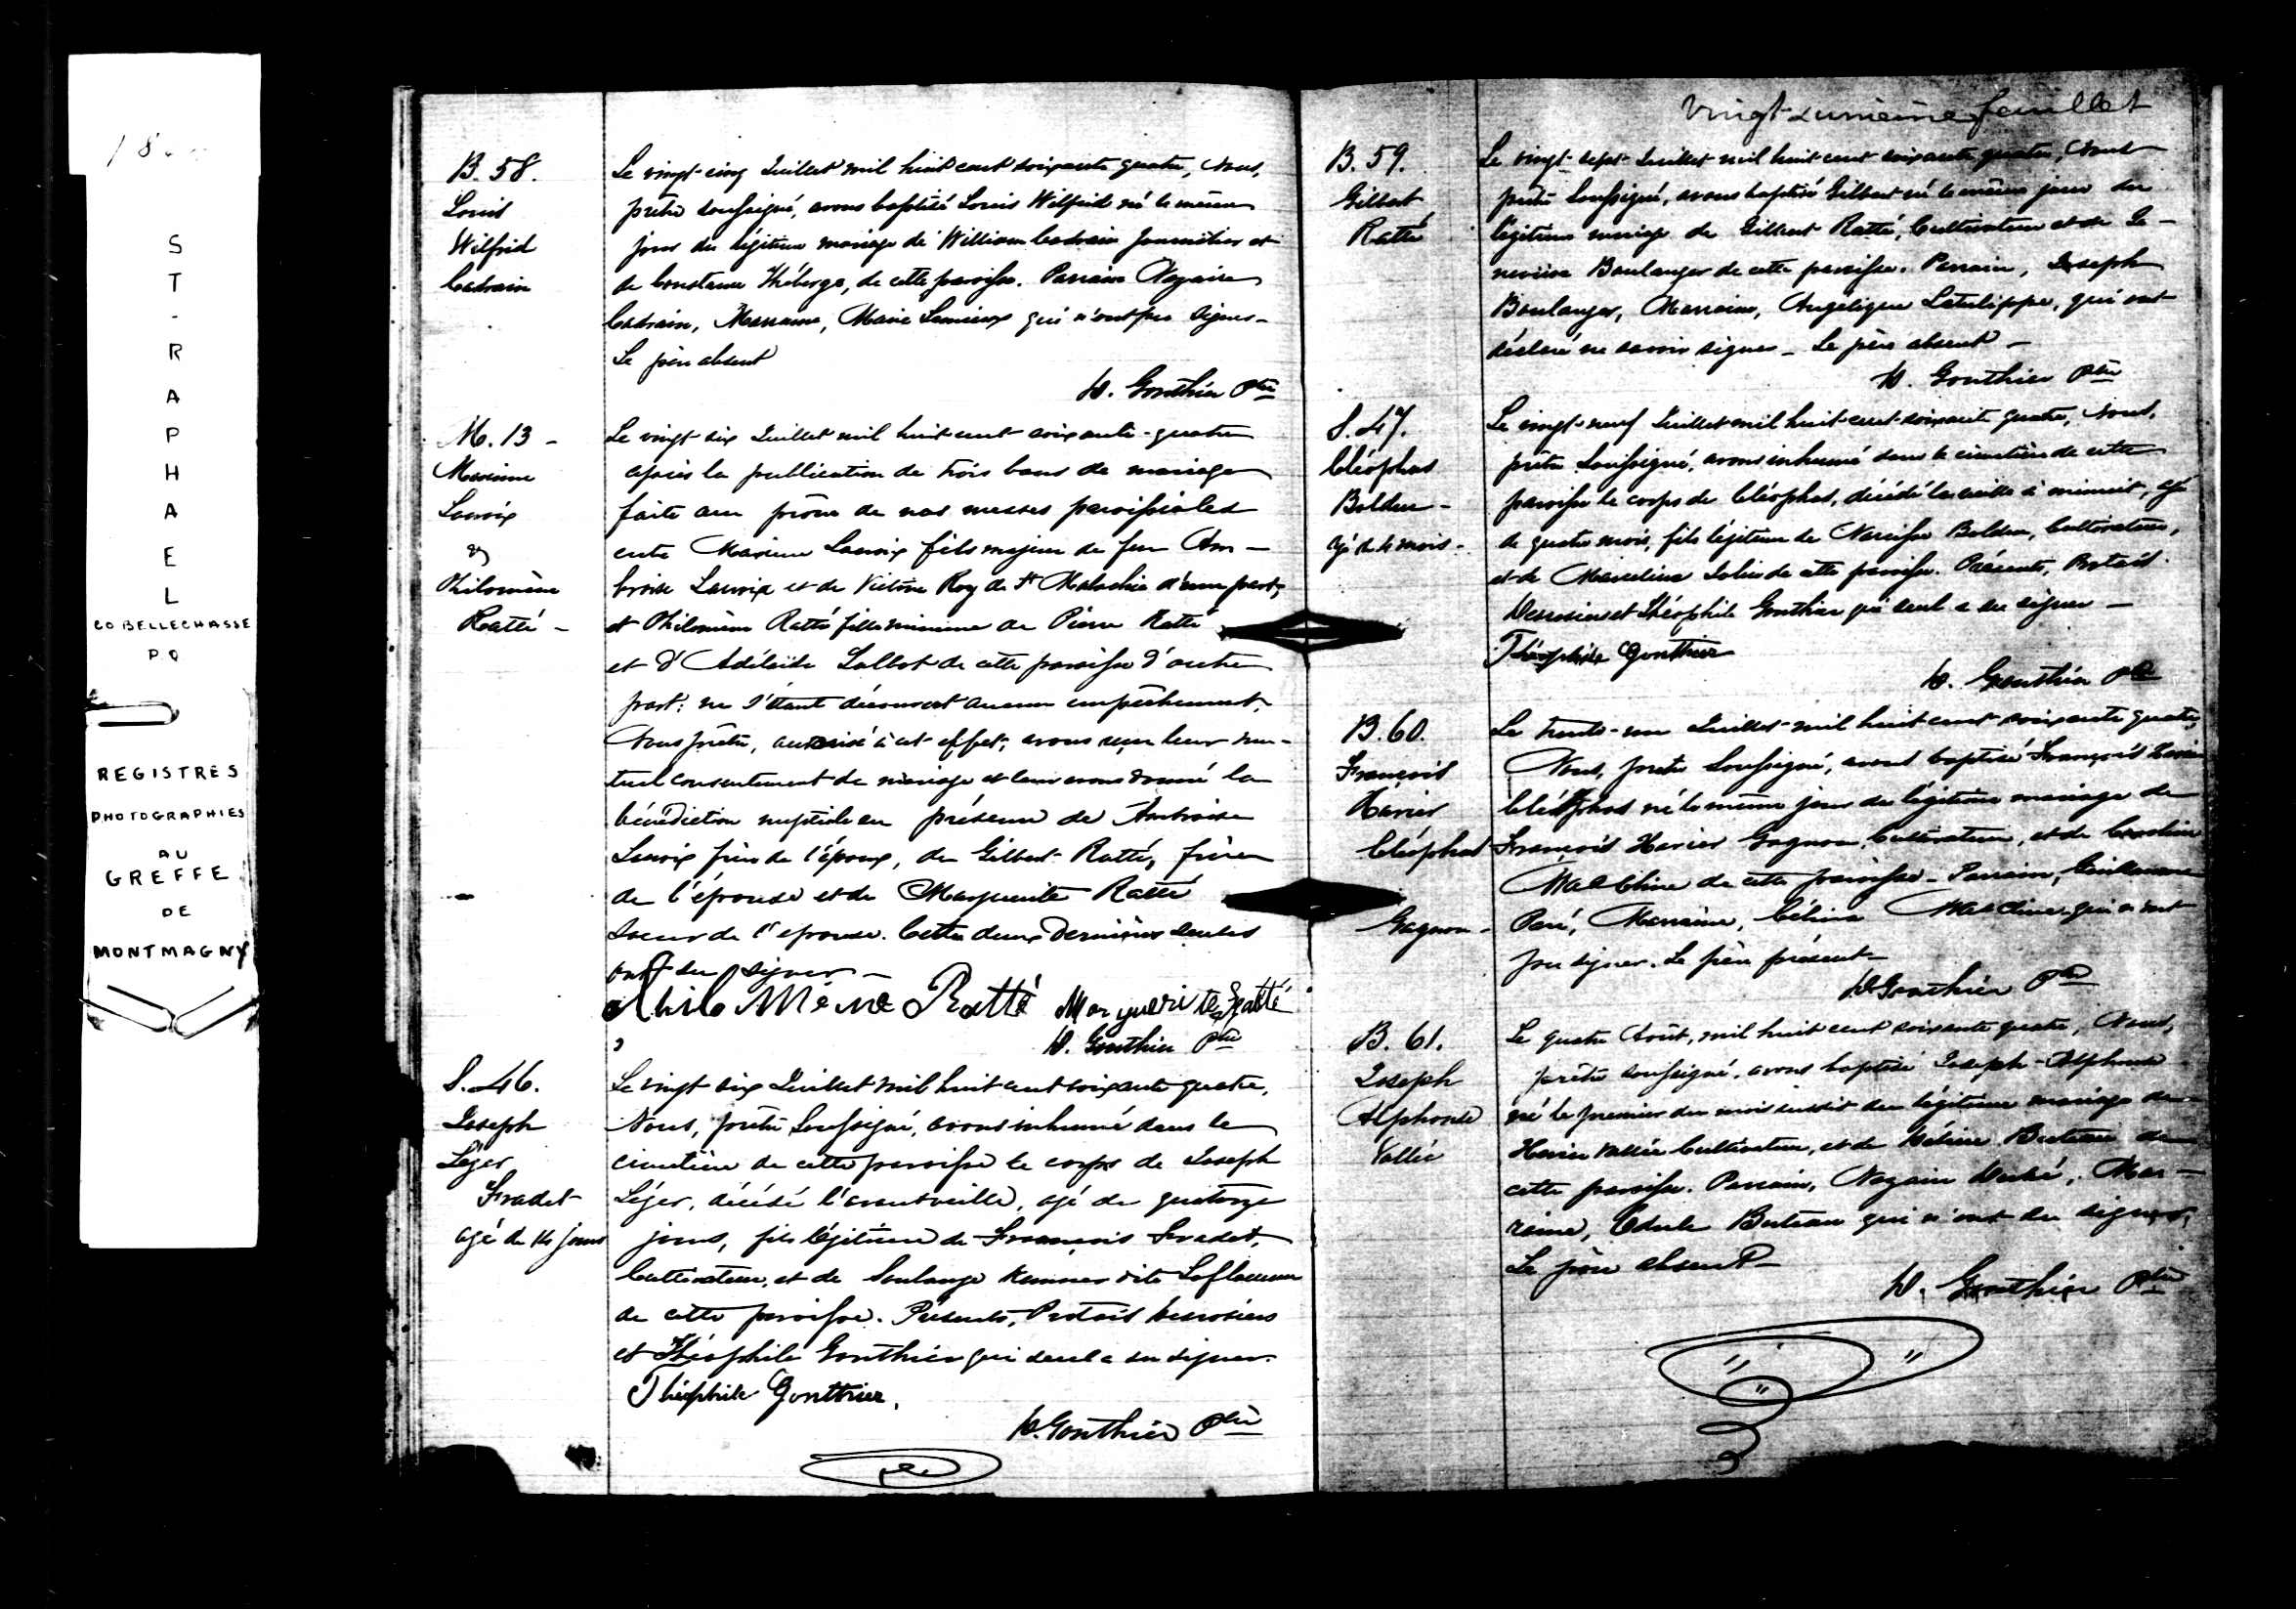 18
ST-RAPHAEL
CO BELLECHASSE
P.Q
REGISTRES
PHOTOGRAPHIES
AU
GREFFE
DE
MONTMAGNY
B. 58.
Louis
Wilfrid
Cadrain
Le vingt-cinq Juillet mil huit cent soixante quatre, Nous,
prêtre soussigné, avons baptisé Louis Wilfrid né le même
jour du légitime mariage de William Cadrain journalier et
de Constance Théberge, de cette paroisse. Parrain Nazaire
Cadrain, Marraine, Marie Lemieux qui n'ont pu signer –
Le père absent
D. Gonthier Ptre
M. 13 –
Maxime
Lacroix
&
Philomène
Ratté –
Le vingt six Juillet mil huit cent soixante-quatre
après la publication de trois bans de mariage
faite au prône de nos messes paroissiales
entre Maxime Lacroix fils majeur de feu Am-
broise Lacroix et de Victoire Roy de St Malachie d'une part,
et Philomène Ratté fille mineure de Pierre Ratté
et d'Adélaïde Talbot de cette paroisse d'autre
part; ne s'étant découvert aucun empêchement,
Nous prêtre, autorisé à cet effet, avons reçu leur mu-
tuel consentement de mariage et leur avons donné la
bénédiction nuptiale en présence de Ambroise
Lacroix frère de l'époux, de Gilbert Ratté, frère
de l'épouse et de Marguerite Ratté
soeur de l'épouse. Cette deux dernières seules
ont su signer –
Philo Mène Ratté Marguerite Ratté
D. Gonthier Ptre
S. 46.
Joseph
Léger
Fradet
agé de 14 jours
Le vingt six Juillet mil huit cent soixante quatre,
Nous, prêtre soussigné, avons inhumé dans le
cimetière de cette paroisse le corps de Joseph
Léger, décédé l'avant veille, agé de quatorze
jours, fils légitime de François Fradet,
Cultivateur, et de Soulange Kemner dite Laflamme
de cette paroisse. Présents, Protais Desrosiers
et Théophile Gonthier qui seul a su signer.
Théophile Gonthier,
D. Gonthier Ptre
Vingt-unième feuillet
B. 59.
Gilbert
Ratté
Le vingt-sept Juillet mil huit cent soixante quatre, Nous
prêtre soussigné, avons baptisé Gilbert né le même jour du
légitime mariage de Gilbert Ratté, Cultivateur et de Ge-
neviève Boulanger de cette paroisse. Parrain, Joseph
Boulanger, Marraine, Angélique Latulippe, qui ont
déclaré ne savoir signer – Le père absent –
D. Gonthier Ptre
S. 47.
Cléophas
Bolduc –
agé de 4 mois –
Le vingt-neuf Juillet mil huit-cent-soixante quatre, Nous,
prêtre soussigné, avons inhumé dans le cimetière de cette
paroisse le corps de Cléophas, décédé la veille à minuit, agé
de quatre mois, fils légitime de Narcisse Bolduc, Cultivateur,
et de Marceline Jolin de cette paroisse. Présents, Protais
Desrosiers et Théophile Gonthier qui seul a su signer –
Théophile Gonthier
D. Gonthier Ptre
B. 60.
François
Xavier
Cléophas
Gagnon –
Le trente-un Juillet mil huit cent soixante quatre,
Nous, prêtre soussigné, avons baptisé François Xavier
Cléophas né le même jour du légitime mariage de
François Xavier Gagnon, Cultivateur, et de
de cette paroisse – Parrain, Guillaume
Paré, Marraine, Célina qui n'ont
pu signer. Le père présent –
D Gonthier Ptre
B. 61.
Joseph
Alphonse
Vallée
Le quatre Août, mil huit cent soixante quatre, Nous,
prêtre soussigné, avons baptisé Joseph-Alphonse
né le premier du mois susdit du légitime mariage de
Xavier Vallée Cultivateur, et de Buteau de
cette paroisse. Parrain, Nazaire Mar-
raine, Buteau qui n'ont su signer,
Le père absent –
D. Gonthier Ptre